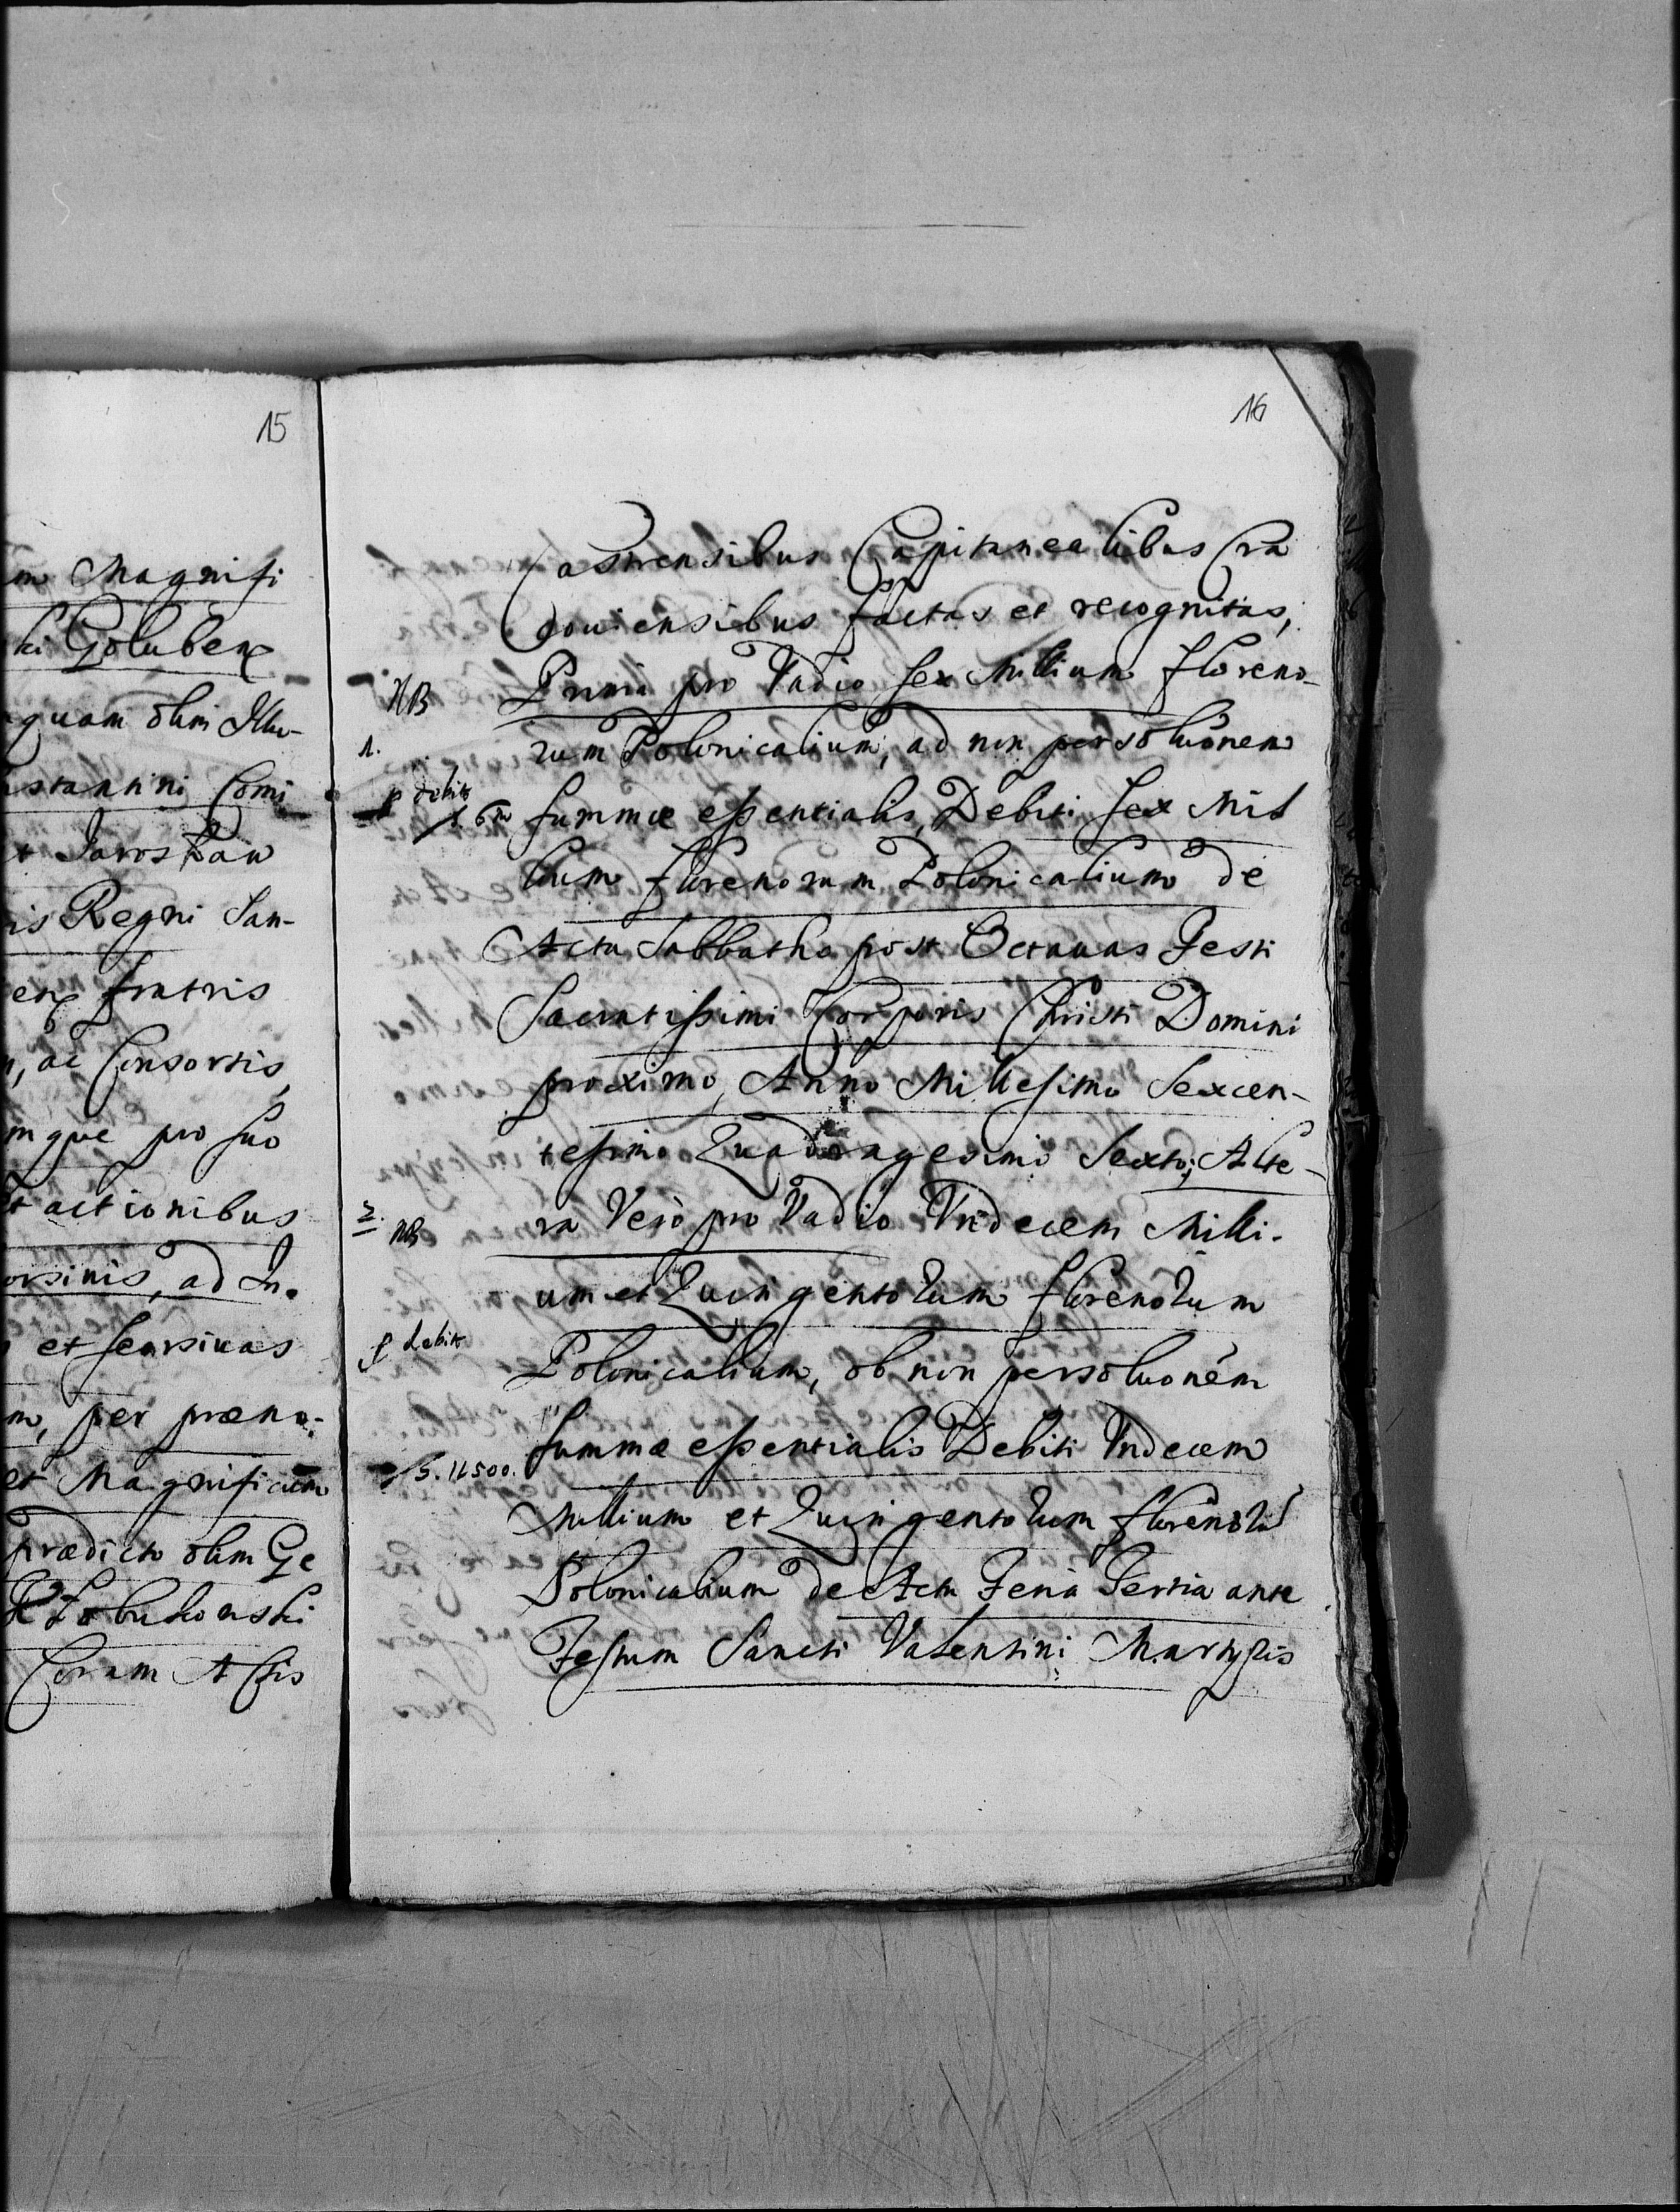 15
m Magnifi
ki Golubenx
quam olim Illu-
stantini Comi
et Jarosław
is Regni San-
enx fratris
, ac Consortis,
mque pro suo
et actionibus
orsinis, ad In-
et searsivas
m, per præno-
et Magnificum
prædicto olim Ge
Złobukowski
Coram Actis
16
Castrensibus Capitanealibus Cra
couiensibus factas et recognitas,
NB Prima pro Vadio sex Millium floreno-
1. rum Polonicalium, ad non persoluõnem
p debit f. 6m summæ essentialis, Debiti sex Mil
lium florenorum Polonicalium de
Actu Sabbatho post Octauas Festi
Sacratissimi Corporis Christi Domini
proximo, Anno Millesimo Sexcen-
tesimo Quadragesimo Sexto; Alte-
2. NB ra Verò pro Vadio Vndecem Milli-
um et Quingentorum florenorum
p debit Polonicalium, ob non persoluõnem
summæ essentialis Debiti Vndecem
f. 11500. Millium et Quingentorum florenorũ
Polonicalium de Actu Feria Tertia ante
Festum Sancti Valentini Martyris